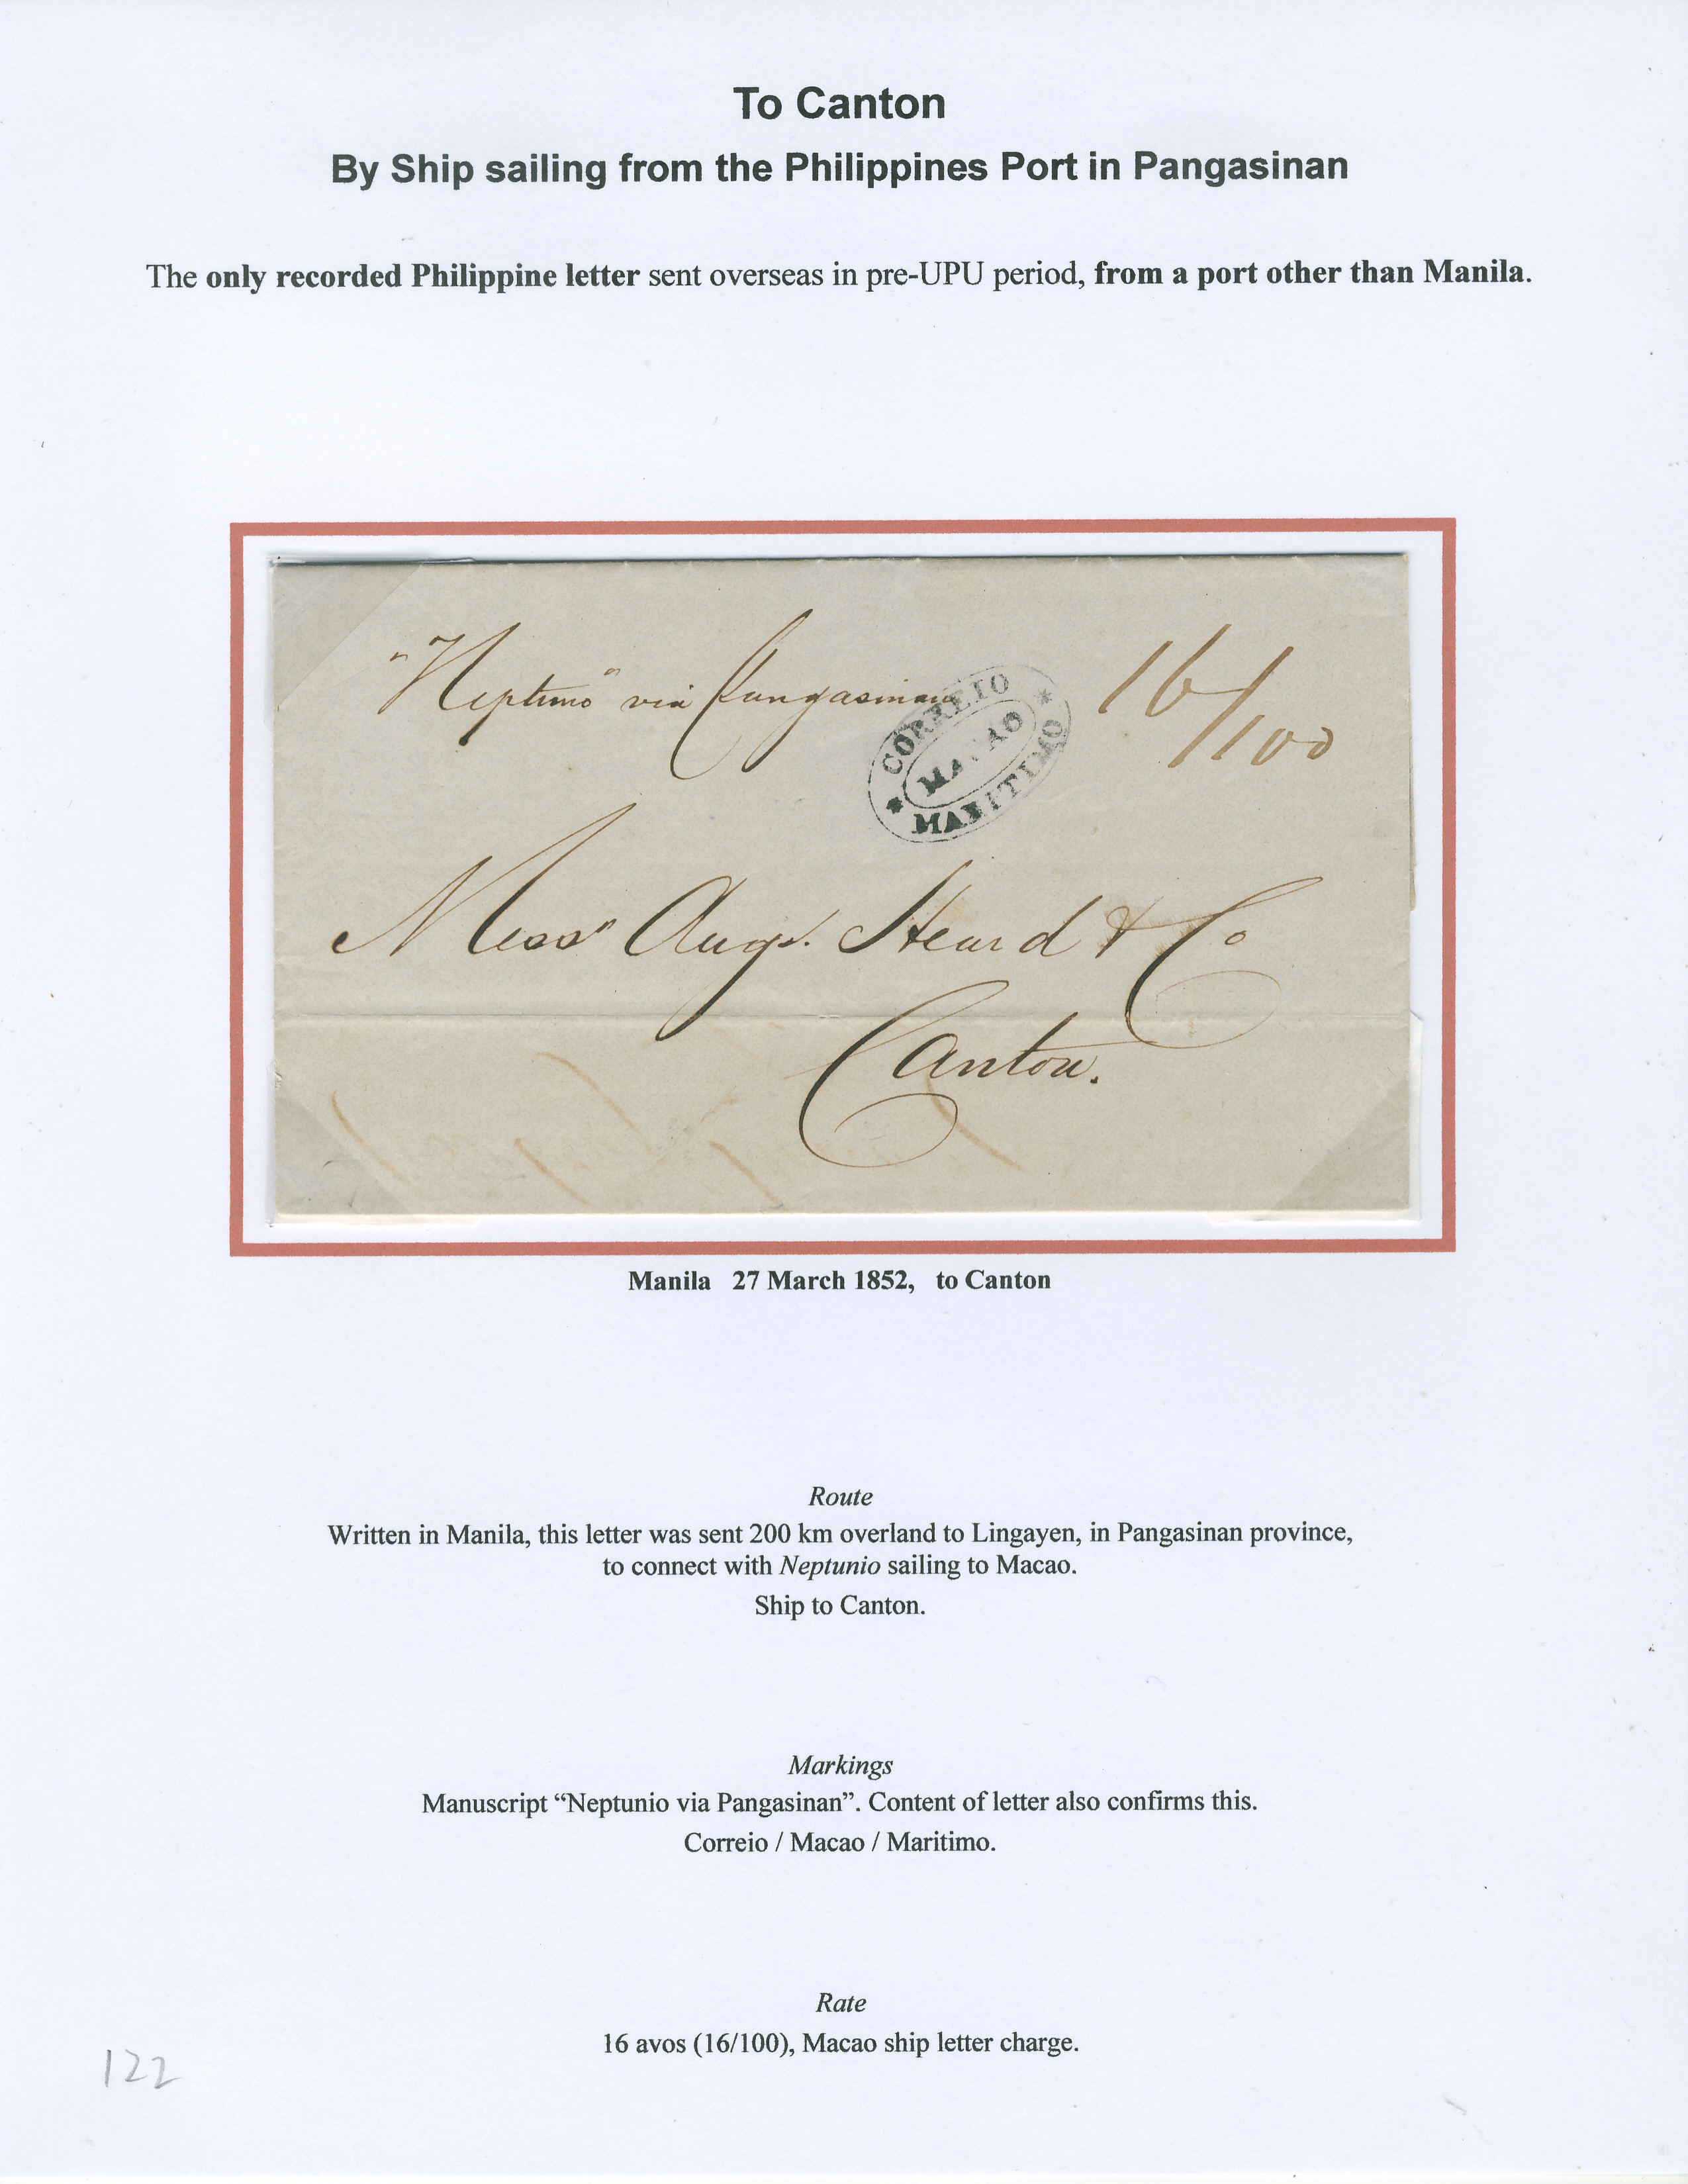 To Canton
By Ship sailing from the Philippines Port in Pangasinan
The only recorded Philippine letter sent overseas in pre-UPU period, from a port other than Manila.
"Neptuno" via Pangasinan
16/100
CORREIO
MACAO
MARITIMO
Messrs Augt. Heard & Co
Canton.
Manila 27 March 1852, to Canton
Route
Written in Manila, this letter was sent 200 km overland to Lingayen, in Pangasinan province,
to connect with Neptunio sailing to Macao.
Ship to Canton.
Markings
Manuscript “Neptunio via Pangasinan”. Content of letter also confirms this.
Correio / Macao / Maritimo.
Rate
16 avos (16/100), Macao ship letter charge.
122